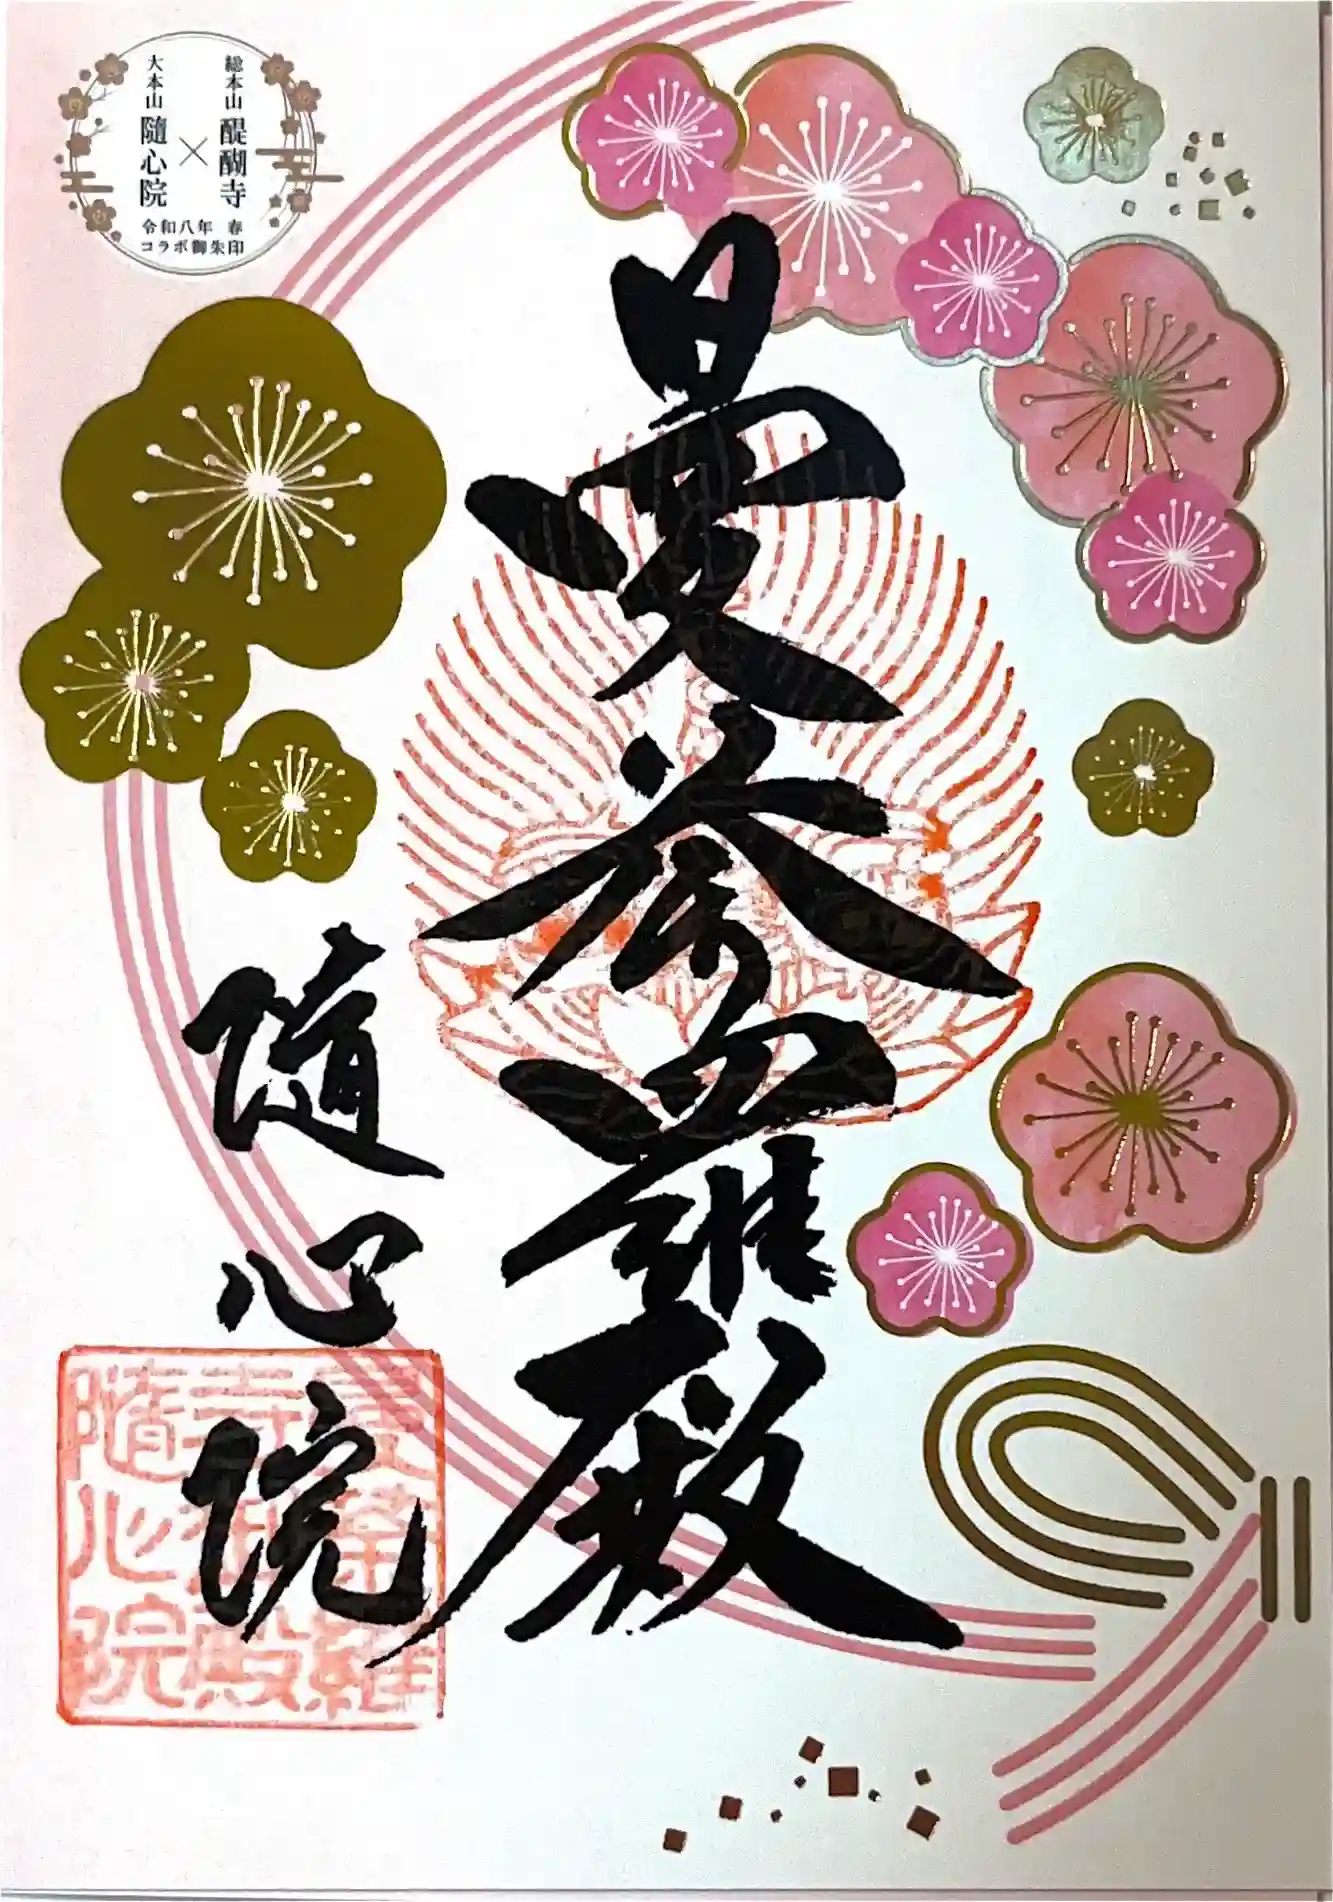 総本山 醍醐寺
×
大本山 隨心院
令和八年 春
コラボ御朱印
曼荼羅殿
隨心院
隨心院